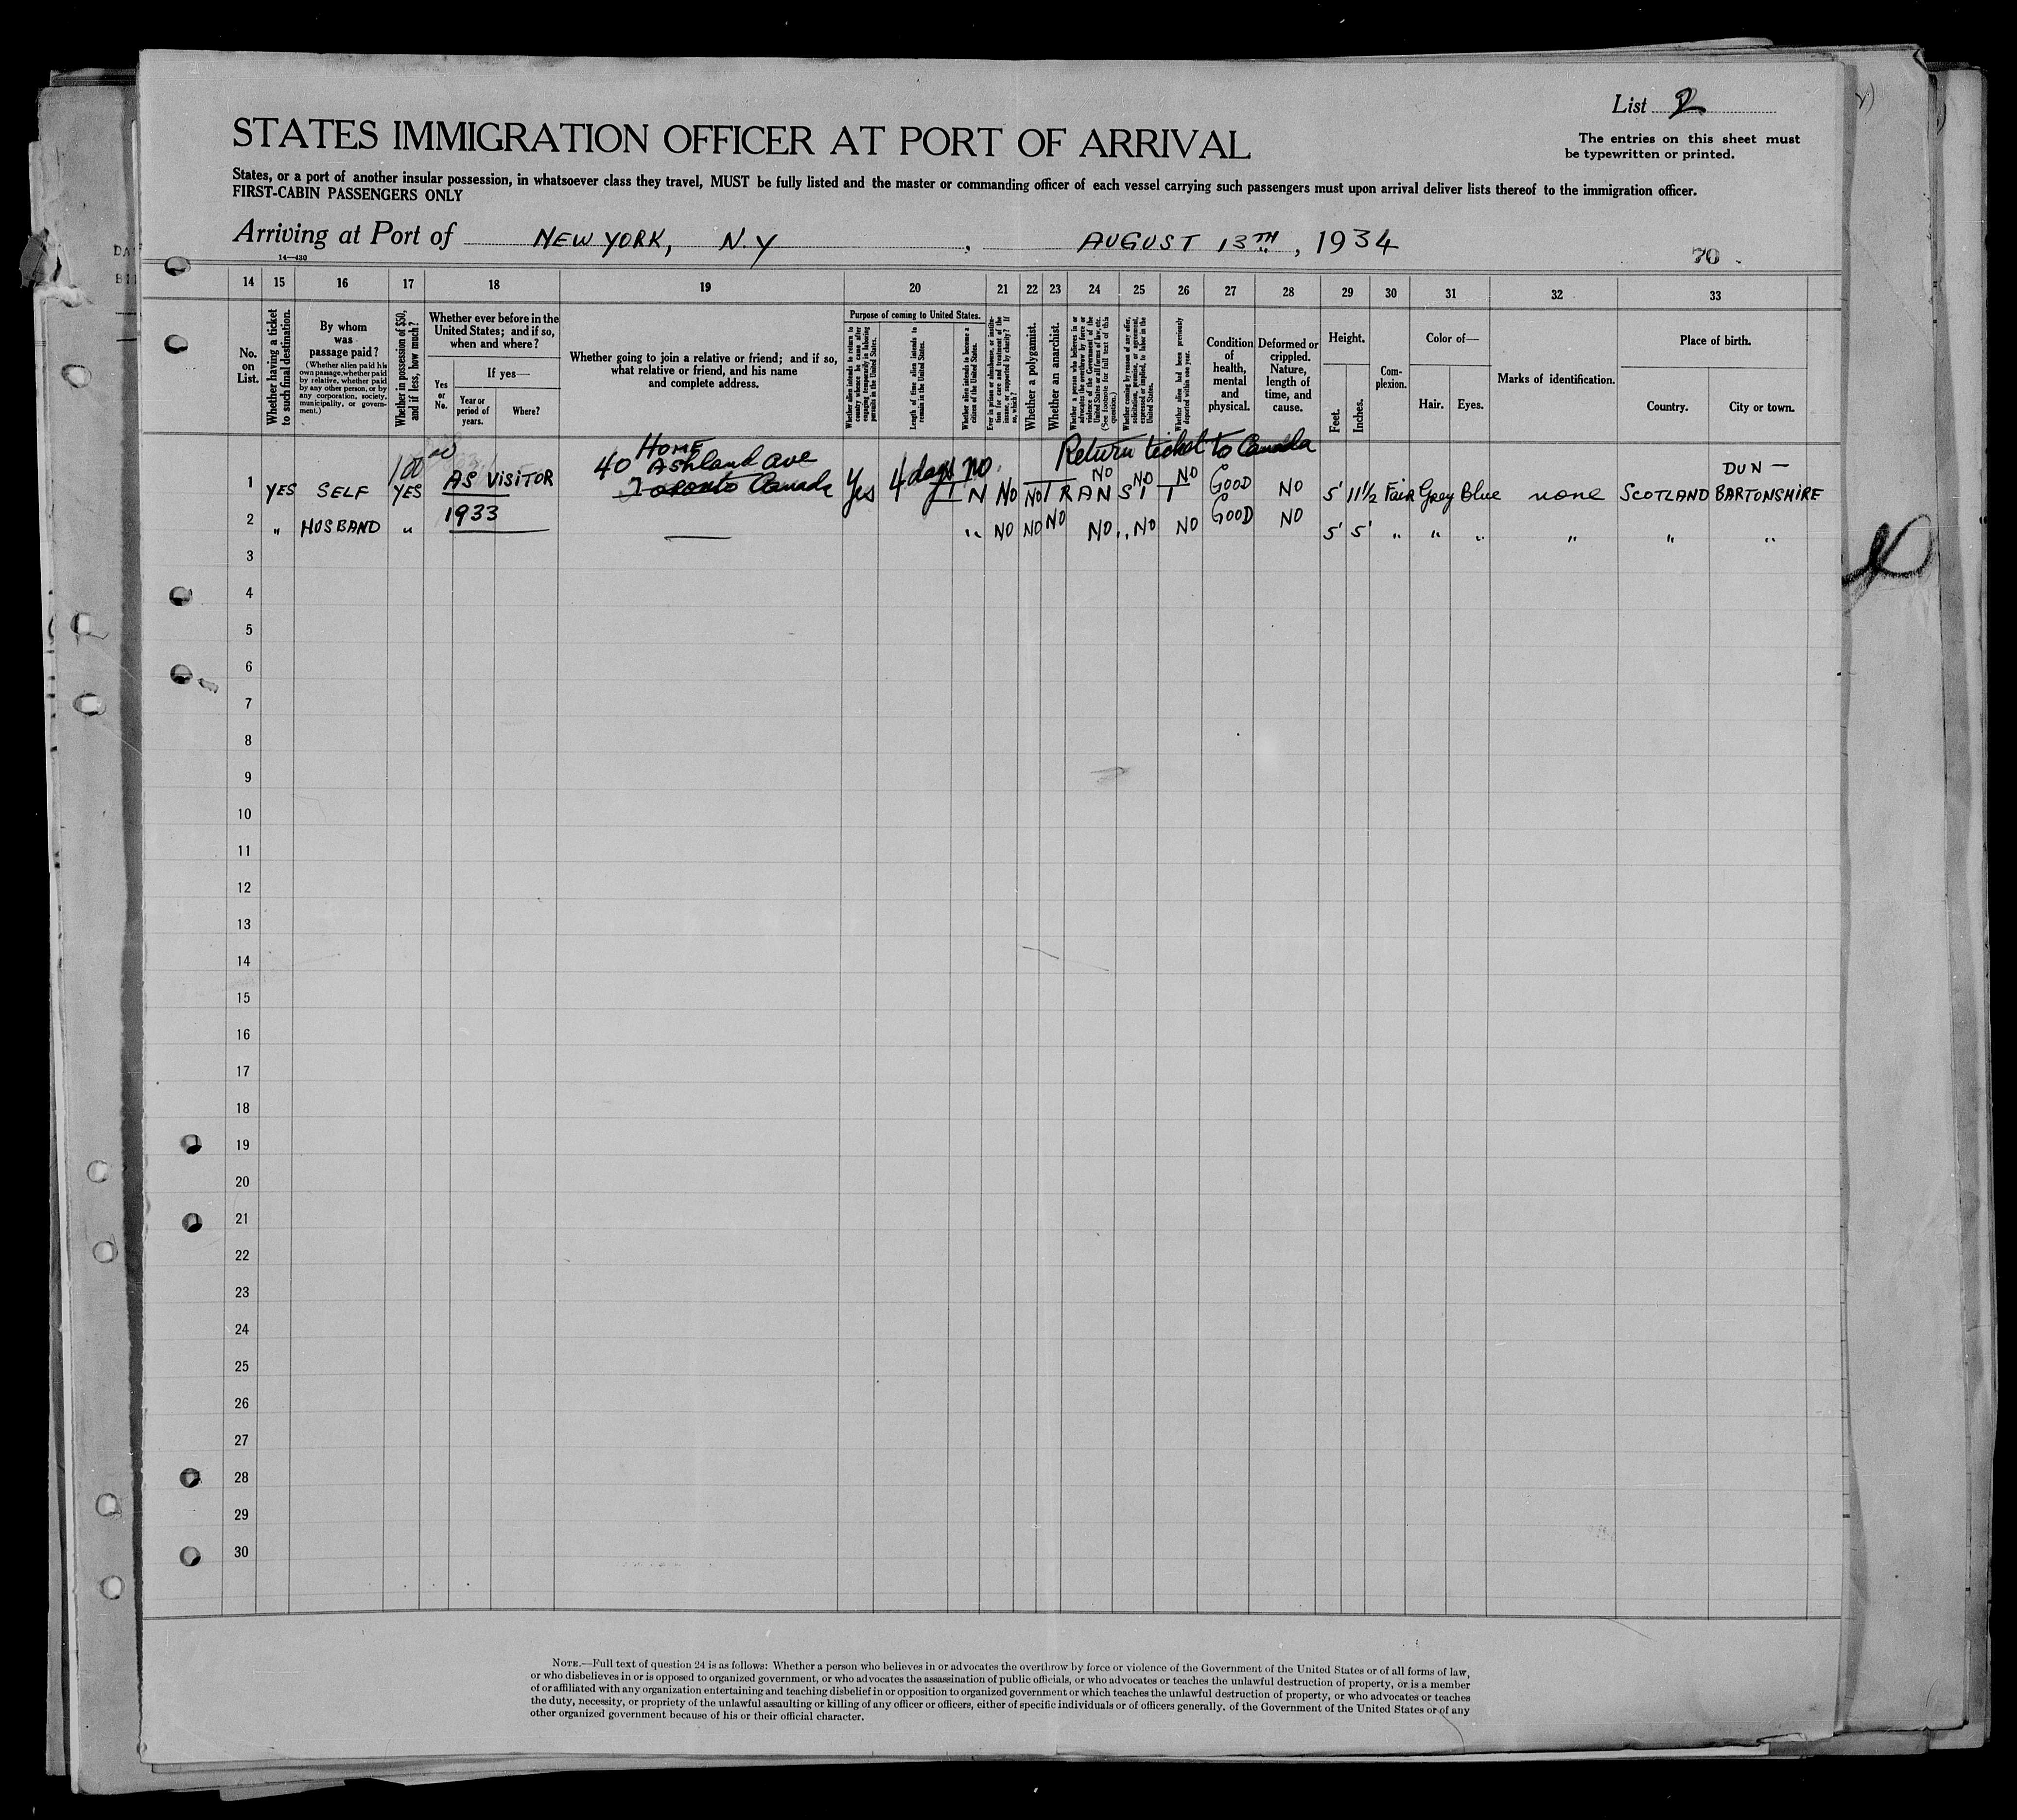 List 2
STATES IMMIGRATION OFFICER AT PORT OF ARRIVAL
The entries on this sheet must
be typewritten or printed.
States, or a port of another insular possession, in whatsoever class they travel, MUST be fully listed and the master or commanding officer of each vessel carrying such passengers must upon arrival deliver lists thereof to the immigration officer.
FIRST-CABIN PASSENGERS ONLY
Arriving at Port of NEW YORK, N.Y , AUGUST 13TH, 1934
14—430
70
14 15 16 17 18 19 20 21 22 23 24 25 26 27 28 29 30 31 32 33
No. on List.
Whether having a ticket to such final destination.
By whom was passage paid?
(Whether alien paid his own passage, whether paid by relative, whether paid by any other person, or by any corporation, society, municipality, or government.)
Whether in possession of $50, and if less, how much?
Whether ever before in the United States; and if so, when and where?
Yes or No.
If yes—
Year or period of years.
Where?
Whether going to join a relative or friend; and if so, what relative or friend, and his name and complete address.
Purpose of coming to United States.
Whether alien intends to return to country whence he came after engaging temporarily in laboring pursuits in the United States.
Length of time alien intends to remain in the United States.
Whether alien intends to become a citizen of the United States.
Ever in prison or almshouse, or institution for care and treatment of the insane, or supported by charity? If so, which?
Whether a polygamist.
Whether an anarchist.
Whether a person who believes in or advocates the overthrow by force or violence of the Government of the United States or all forms of law, etc. (See footnote for full text of this question.)
Whether coming by reason of any offer, solicitation, promise, or agreement, expressed or implied, to labor in the United States.
Whether alien had been previously deported within one year.
Condition of health, mental and physical.
Deformed or crippled. Nature, length of time, and cause.
Height.
Feet.
Inches.
Complexion.
Color of—
Hair.
Eyes.
Marks of identification.
Place of birth.
Country.
City or town.
HOME Return ticket to Canada
100 00 40 Ashland ave DUN —
1 YES SELF YES AS VISITOR Toronto Canada Yes 4 days no IN TRANSIT NO NO NO NO NO GOOD NO 5' 11½ Fair Grey Blue none SCOTLAND BARTONSHIRE
2 " HUSBAND " 1933 — " NO NO NO NO " NO NO GOOD NO 5' 5' " " " " " "
3
4
5
6
7
8
9
10
11
12
13
14
15
16
17
18
19
20
21
22
23
24
25
26
27
28
29
30
NOTE.—Full text of question 24 is as follows: Whether a person who believes in or advocates the overthrow by force or violence of the Government of the United States or of all forms of law,
or who disbelieves in or is opposed to organized government, or who advocates the assassination of public officials, or who advocates or teaches the unlawful destruction of property, or is a member
of or affiliated with any organization entertaining and teaching disbelief in or opposition to organized government or which teaches the unlawful destruction of property, or who advocates or teaches
the duty, necessity, or propriety of the unlawful assaulting or killing of any officer or officers, either of specific individuals or of officers generally, of the Government of the United States or of any
other organized government because of his or their official character.